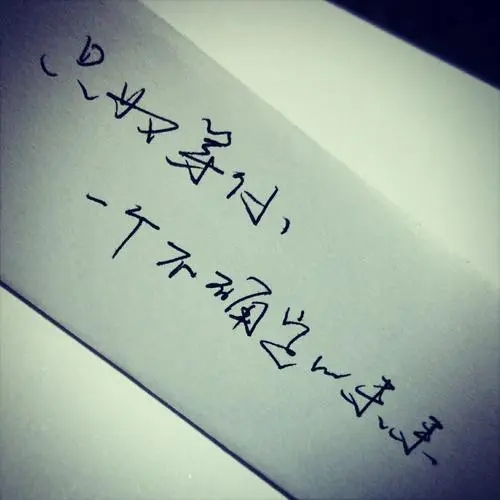 只好等待，
一个不确定的未来.